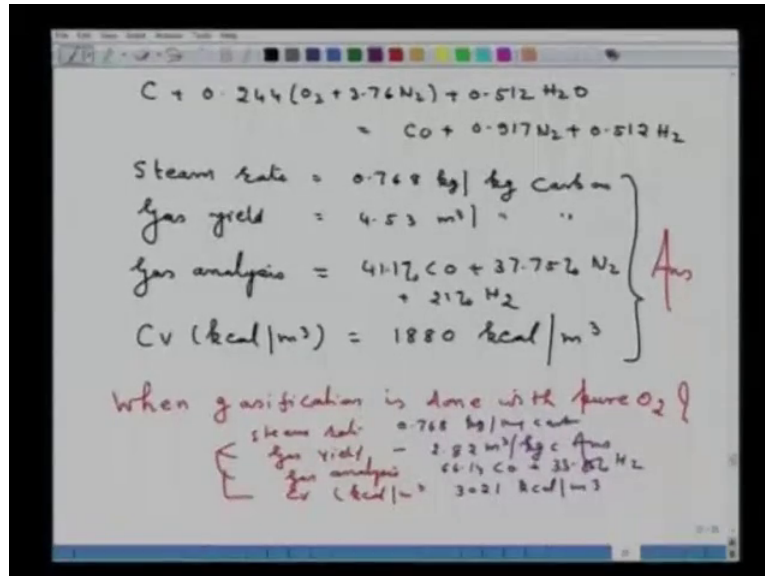 C + 0.244 (O2 + 3.76 N2) + 0.512 H2O
= CO + 0.917 N2 + 0.512 H2
Steam rate = 0.768 kg/kg carbon
Gas yield = 4.53 m³/ " "
Gas analysis = 41.1% CO + 37.75% N2
+ 21% H2
Ans
CV (kcal/m³) = 1880 kcal/m³
When gasification is done with pure O2?
Steam rate 0.768 kg/kg carb
Gas yield - 2.82 m³/kg C Ans
Gas analysis 66.1% CO + H2
CV (kcal/m³ 3021 kcal/m³